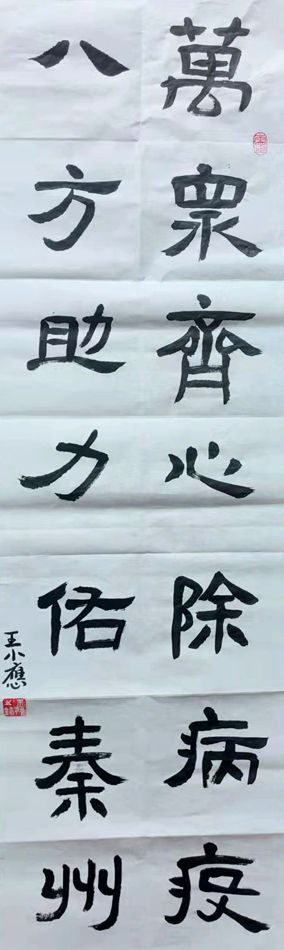 萬眾齊心除病疫
八方助力佑秦州
王小應